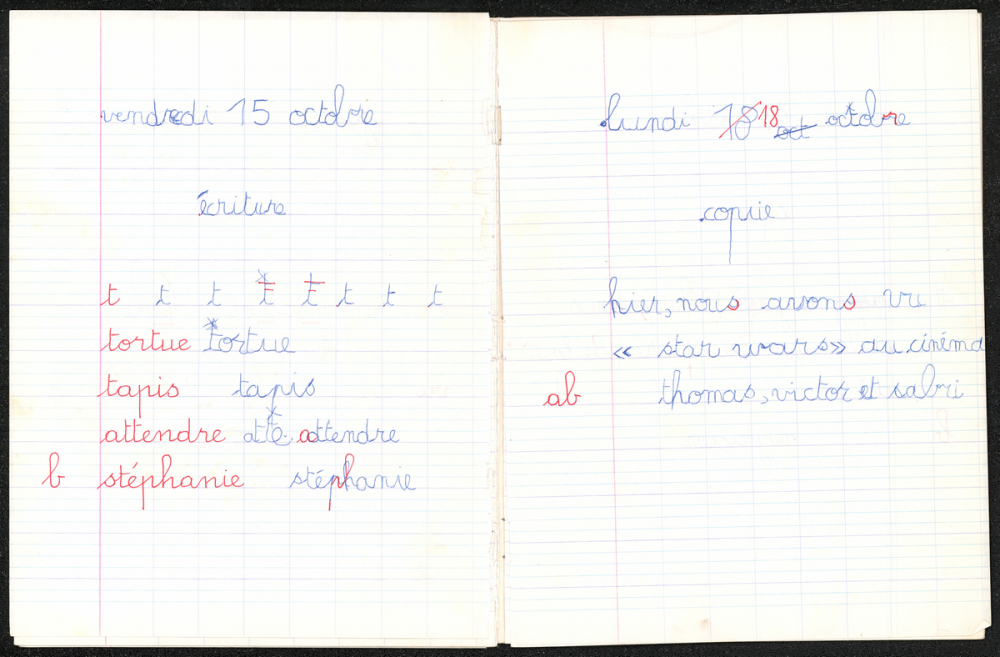 vendredi 15 octobre
écriture
t t t t t t t t
tortue tortue
tapis tapis
attendre atte attendre
b stéphanie stéphanie
lundi 18 18 oct octobre
copie
hier, nous avons vu
« star wars » au cinéma
ab thomas, victor et sabri